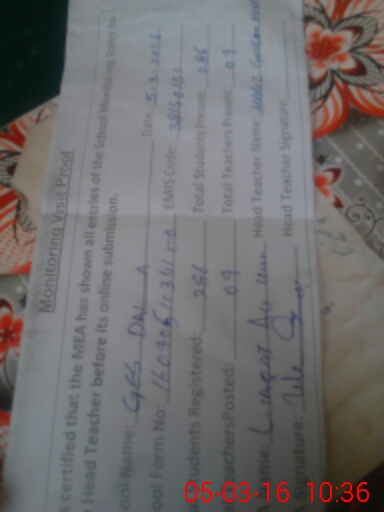 Monitoring Visit Proof
s certified that the MEA has shown all entries of the School Monitoring Form to
Head Teacher before its online submission.
ool Name: GES DAL A Date 5.3.2016
ool Form No: EMIS Code:
tudents Registered: 286 Total Students Present 286
eachersPosted: 09 Total Teachers Present 09
ame: LIAQAT Ali Head Teacher Name
ignature: Head Teacher Signature:
05-03-16 10:36